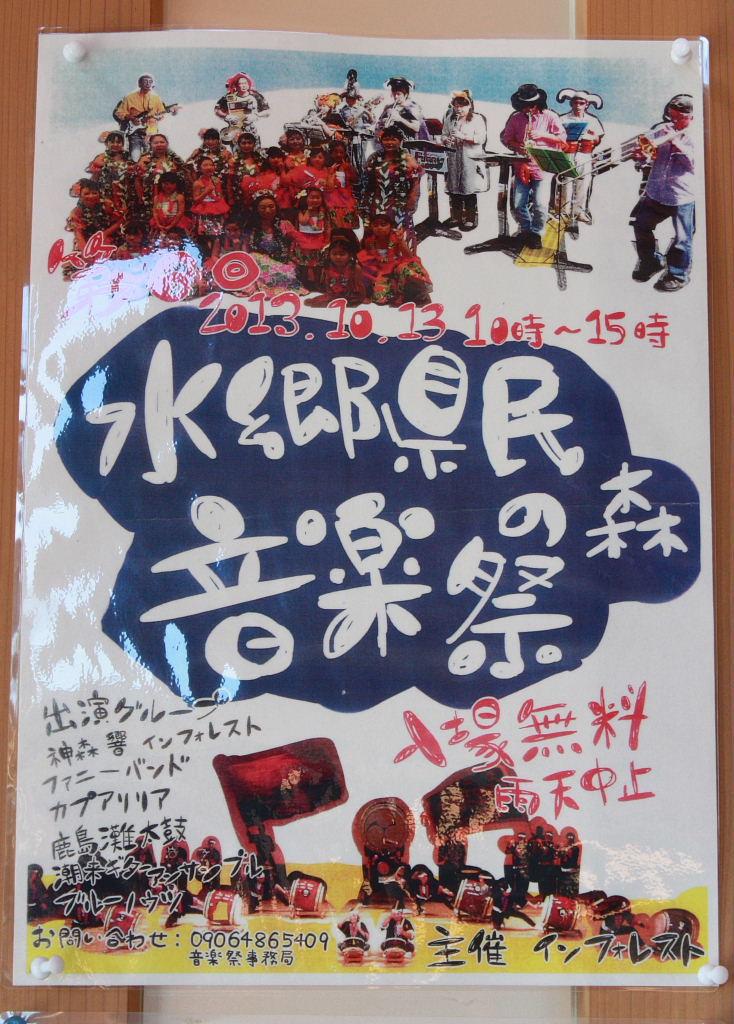 第 回
2013.10.13 10時～15時
水郷県民
の森
音楽祭
入場無料
雨天中止
出演グループ
神森 響 インフォレスト
ファニーバンド
カプアリリア
鹿島灘太鼓
潮来ギターアンサンブル
ブルーノウツ
お問い合わせ：09064865409
音楽祭事務局
主催 インフォレスト